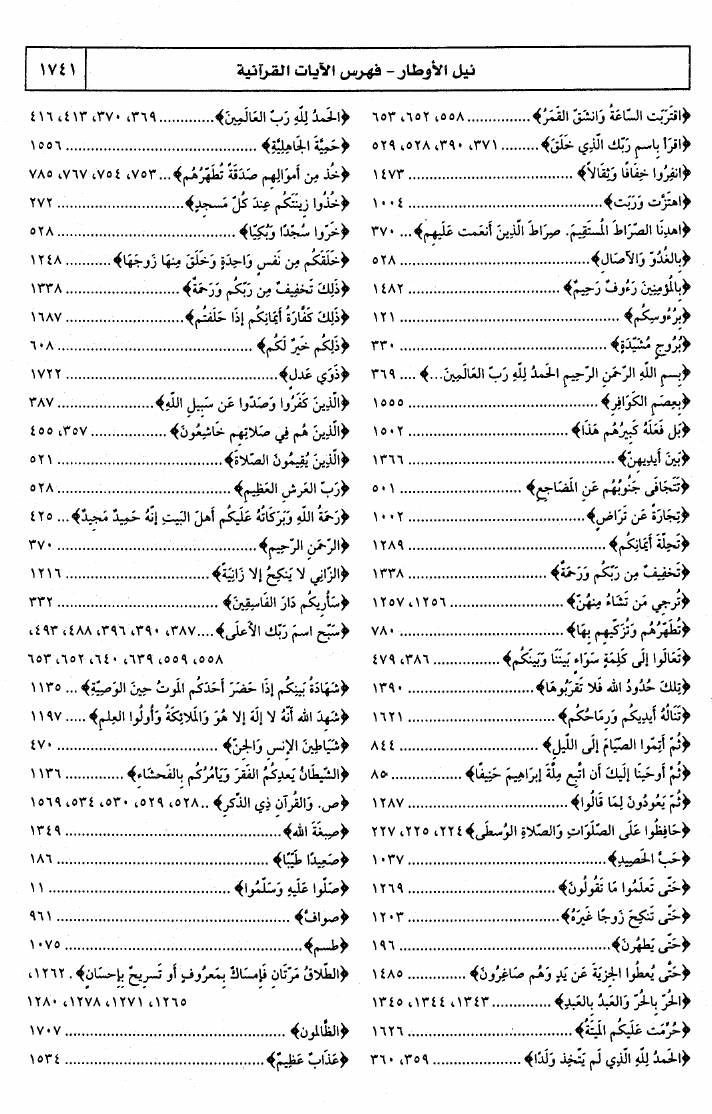 نيل الأوطار - فهرس الآيات القرآنية ١٧٤١
﴿اقتَرَبَت السَّاعَةُ وَانشَقَّ القَمَرُ﴾ .............. ٥٥٨، ٦٥٢، ٦٥٣
﴿اقرَأ بِاسمِ رَبِّكَ الَّذِي خَلَقَ﴾ ......... ٣٧١، ٣٩٠، ٥٢٨، ٥٢٩
﴿انفِرُوا خِفَافًا وَثِقَالاً﴾ .............. ١٤٧٣
﴿اهتَزَّت وَرَبَت﴾ .............. ١٠٠٤
﴿اهدِنَا الصِّرَاطَ المُستَقِيمَ. صِرَاطَ الَّذِينَ أَنعَمت عَلَيهِم﴾ ... ٣٧٠
﴿بِالغُدُوِّ وَالآصَالِ﴾ .............. ٥٢٨
﴿بِالمُؤمِنِينَ رَءُوفٌ رَحِيمٌ﴾ .............. ١٤٨٢
﴿بِرُءُوسِكُم﴾ .............. ١٢١
﴿بُرُوجٍ مُشَيَّدَةٍ﴾ .............. ٣٣٠
﴿بِسمِ اللَّهِ الرَّحمَنِ الرَّحِيمِ الحَمدُ لِلَّهِ رَبِّ العَالَمِينَ...﴾ .... ٣٦٩
﴿بِعِصَمِ الكَوَافِرِ﴾ .............. ١٥٥٥
﴿بَل فَعَلَهُ كَبِيرُهُم هَذَا﴾ .............. ١٥٠٢
﴿بَينَ أَيدِيهِنَّ﴾ .............. ١٣٦٦
﴿تَتَجَافَى جُنُوبُهُم عَنِ المَضَاجِعِ﴾ .............. ٥٠١
﴿تِجَارَةً عَن تَرَاضٍ﴾ .............. ١٠٠٢
﴿تَحِلَّةَ أَيمَانِكُم﴾ .............. ١٢٨٩
﴿تَخفِيفٌ مِن رَبِّكُم وَرَحمَةٌ﴾ .............. ١٣٣٨
﴿تُرجِي مَن تَشَاءُ مِنهُنَّ﴾ .............. ١٢٥٦، ١٢٥٧
﴿تُطَهِّرُهُم وَتُزَكِّيهِم بِهَا﴾ .............. ٧٨٠
﴿تَعَالَوا إِلَى كَلِمَةٍ سَوَاءٍ بَينَنَا وَبَينَكُم﴾ .............. ٣٨٦، ٤٧٩
﴿تِلكَ حُدُودُ الله فَلا تَقرَبُوهَا﴾ .............. ١٣٩٠
﴿تَنَالُهُ أَيدِيكُم وَرِمَاحُكُم﴾ .............. ١٦٢١
﴿ثُمَّ أَتِمُّوا الصِّيَامَ إِلَى اللَّيلِ﴾ .............. ٨٤٤
﴿ثُمَّ أَوحَينَا إِلَيكَ أَن اتَّبِع مِلَّةَ إِبرَاهِيمَ حَنِيفًا﴾ .............. ٨٥
﴿ثُمَّ يَعُودُونَ لِمَا قَالُوا﴾ .............. ١٢٨٧
﴿حَافِظُوا عَلَى الصَّلَوَاتِ وَالصَّلاةِ الوُسطَى﴾ ٢٢٤، ٢٢٥، ٢٢٧
﴿حَبَّ الحَصِيدِ﴾ .............. ١٠٣٧
﴿حَتَّى تَعلَمُوا مَا تَقُولُونَ﴾ .............. ١٢٦٩
﴿حَتَّى تَنكِحَ زَوجًا غَيرَهُ﴾ .............. ١٢٠٣
﴿حَتَّى يَطهُرنَ﴾ .............. ١٩٦
﴿حَتَّى يُعطُوا الجِزيَةَ عَن يَدٍ وَهُم صَاغِرُونَ﴾ .............. ١٤٨٥
﴿الحُرُّ بِالحُرِّ وَالعَبدُ بِالعَبدِ﴾ .............. ١٣٤٣، ١٣٤٤، ١٣٤٥
﴿حُرِّمَت عَلَيكُم المَيتَةُ﴾ .............. ١٦٢٦
﴿الحَمدُ لِلَّهِ الَّذِي لَم يَتَّخِذ وَلَدًا﴾ .............. ٣٥٩، ٣٦٠
﴿الحَمدُ لِلَّهِ رَبِّ العَالَمِينَ﴾ ............ ٣٦٩، ٣٧٠، ٤١٣، ٤١٦
﴿حَمِيَّةَ الجَاهِلِيَّةِ﴾ .............. ١٥٥٦
﴿خُذ مِن أَموَالِهِم صَدَقَةً تُطَهِّرُهُم﴾ ... ٧٥٣، ٧٥٤، ٧٦٧، ٧٨٥
﴿خُذُوا زِينَتَكُم عِندَ كُلِّ مَسجِدٍ﴾ .............. ٢٧٢
﴿خَرّوا سُجَّدًا وَبُكِيًّا﴾ .............. ٥٢٨
﴿خَلَقَكُم مِن نَفسٍ وَاحِدَةٍ وَخَلَقَ مِنهَا زَوجَهَا﴾ .............. ١٢٤٨
﴿ذَلِكَ تَخفِيفٌ مِن رَبِّكُم وَرَحمَةٌ﴾ .............. ١٣٣٨
﴿ذَلِكَ كَفَّارَةُ أَيمَانِكُم إِذَا حَلَفتُم﴾ .............. ١٦٨٧
﴿ذَلِكُم خَيرٌ لَكُم﴾ .............. ٦٠٨
﴿ذَوَي عَدلٍ﴾ .............. ١٧٢٢
﴿الَّذِينَ كَفَرُوا وَصَدّوا عَن سَبِيلِ اللَّهِ﴾ .............. ٣٨٧
﴿الَّذِينَ هُم فِي صَلاتِهِم خَاشِعُونَ﴾ .............. ٣٥٧، ٤٥٥
﴿الَّذِينَ يُقِيمُونَ الصَّلاةَ﴾ .............. ٥٢١
﴿رَبّ العَرشِ العَظِيمِ﴾ .............. ٥٢٨
﴿رَحمَةُ اللَّهِ وَبَرَكَاتُهُ عَلَيكُم أَهلَ البَيتِ إِنَّهُ حَمِيدٌ مَجِيدٌ﴾ ... ٤٢٥
﴿الرَّحمَنِ الرَّحِيمِ﴾ .............. ٣٧٠
﴿الزَّانِي لا يَنكِحُ إلا زَانِيَةً﴾ .............. ١٢١٦
﴿سَأُرِيكُم دَارَ الفَاسِقِينَ﴾ .............. ٣٣٢
﴿سَبِّح اسمَ رَبِّكَ الأَعلَى﴾ .... ٣٨٧، ٣٩٠، ٣٩٦، ٤٨٨، ٤٩٣،
٥٥٨، ٥٥٩، ٦٣٩، ٦٤٠، ٦٥٢، ٦٥٣
﴿شَهَادَةُ بَينِكُم إِذَا حَضَرَ أَحَدَكُم المَوتُ حِينَ الوَصِيَّةِ﴾ ... ١١٣٥
﴿شَهِدَ الله أَنَّهُ لا إِلَهَ إِلا هُوَ وَالمَلائِكَةُ وَأُولُوا العِلمِ﴾ ..... ١١٩٧
﴿شَيَاطِينَ الإِنسِ وَالجِنِّ﴾ .............. ٤٧٠
﴿الشَّيطَانُ يَعِدُكُمُ الفَقرَ وَيَأمُرُكُم بِالفَحشَاءِ﴾ .............. ١١٣٦
﴿ص. وَالقُرآنِ ذِي الذِّكرِ﴾ .. ٥٢٨، ٥٢٩، ٥٣٠، ٥٣٤، ١٥٦٩
﴿صِبغَةَ الله﴾ .............. ١٣٤٩
﴿صَعِيدًا طَيِّبًا﴾ .............. ١٨٦
﴿صَلّوا عَلَيهِ وَسَلِّمُوا﴾ .............. ١١
﴿صوافّ﴾ .............. ٩٦١
﴿طسم﴾ .............. ١٠٧٥
﴿الطَّلاقُ مَرَّتَانِ فَإِمسَاكٌ بِمَعرُوفٍ أَو تَسرِيحٌ بِإِحسَانٍ﴾ . ١٢٦٢،
١٢٦٥، ١٢٧١، ١٢٧٨، ١٢٨٠
﴿الظَّالمون﴾ .............. ١٧٠٧
﴿عَذَابٌ عَظِيمٌ﴾ .............. ١٥٣٤